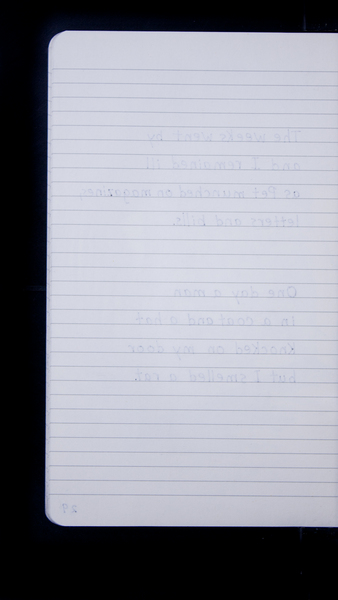 The weeks went by
and I remained ill
as Pet munched on magazines,
letters and bills.
One day a man
in a coat and a hat
knocked on my door
but I smelled a rat.
27